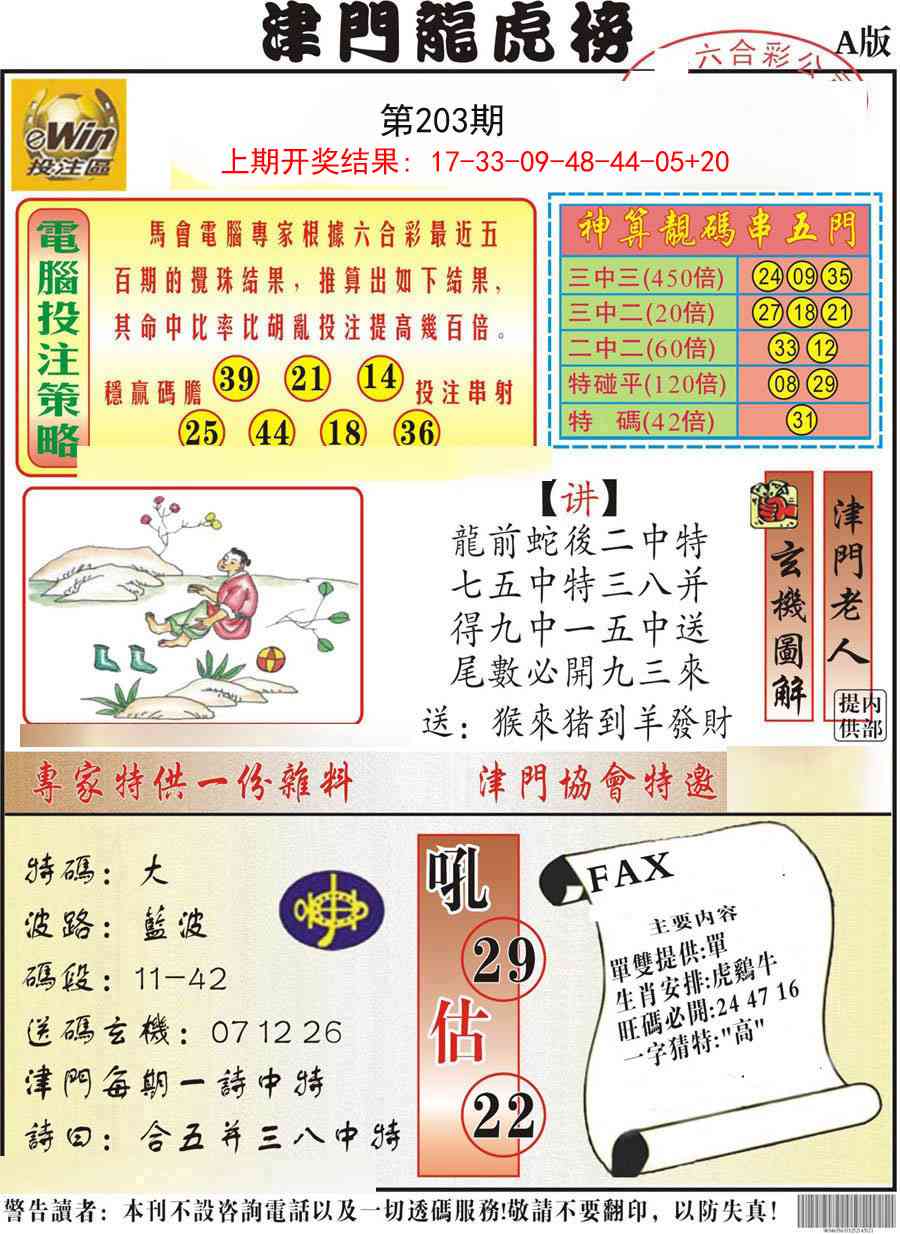 津門龍虎榜
A版
六合彩公
eWin
投注區
第203期
上期开奖结果：17-33-09-48-44-05+20
電腦投注策略
馬會電腦專家根據六合彩最近五
百期的攪珠结果，推算出如下结果，
其命中比率比胡亂投注提高幾百倍。
穩贏碼膽 39 21 14 投注串射
25 44 18 36
神算靚碼串五門
三中三(450倍) 24 09 35
三中二(20倍) 27 18 21
二中二(60倍) 33 12
特碰平(120倍) 08 29
特 碼(42倍) 31
【讲】
龍前蛇後二中特
七五中特三八并
得九中一五中送
尾數必開九三來
送：猴來猪到羊發財
玄機圖解
津門老人
提供
内部
專家特供一份雜料
津門協會特邀
特碼：大
波路：藍波
碼段：11-42
送碼玄機：07 12 26
津門每期一詩中特
詩曰：合五并三八中特
吼
29
估
22
FAX
主要内容
單雙提供:單
生肖安排:虎鷄牛
旺碼必開:24 47 16
一字猜特:"高"
警告讀者：本刊不設咨詢電話以及一切透碼服務!敬請不要翻印，以防失真!